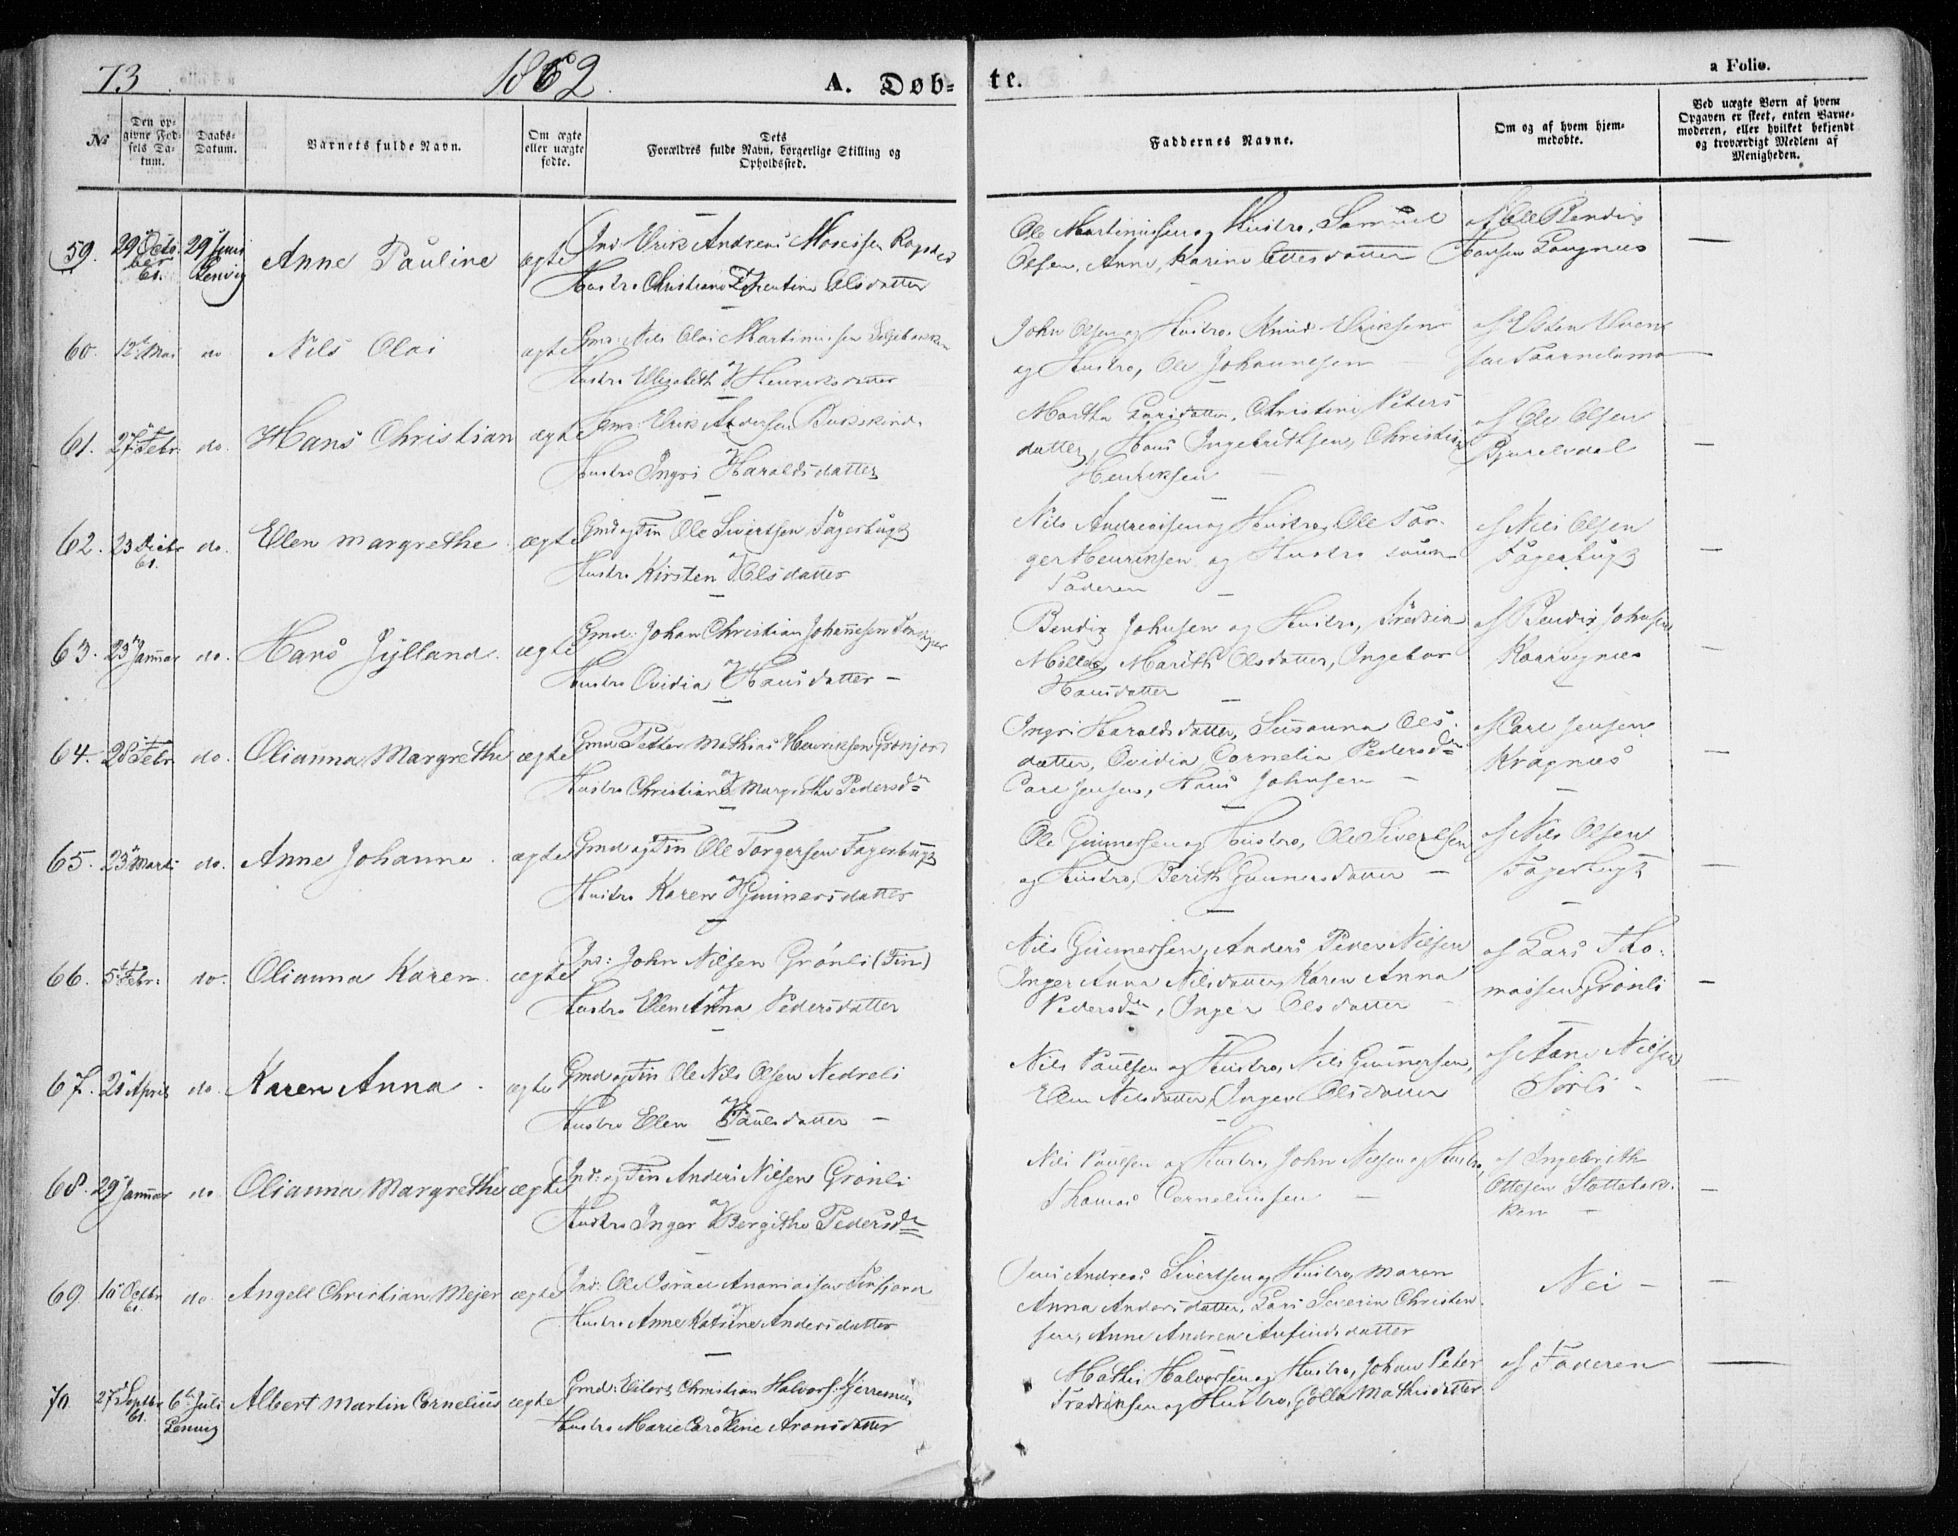 73
1862
A. Døb-
te.
a Folio.
№
Den op-
givne Fød-
sels Da-
tum.
Daabs-
Datum.
Barnets fulde Navn.
Om ægte
eller uægte
fødte.
Dets
Forældres fulde Navn, borgerlige Stilling og
Opholdssted.
Faddernes Navne.
Om og af hvem hjem-
medøbte.
Ved uægte Børn af hvem
Opgaven er skeet, enten Barne-
moderen, eller hvilket bekjendt
og troværdigt Medlem af
Menigheden.
59. 29 Octo- 29 Juni Anne Pauline ægte Ind: Erik Andreas Mosessen
ber Lenvig
61.
Hustro Christiane Olsdatter
Ole Martinussen og Hustro, Samuel
Olsen, Anne Karine Ottesdatter
af Ole Bendix
Hansen
60. 12 Mai do Nils Olai ægte Gmd: Nils Olai Martinussen
Hustro Elisabeth Henriksdatter
John Olsen og Hustro, Knud Eriksen
og Hustro, Ole Johannesen
61. 27 Febr. do. Hans Christian ægte Gmd: Erik Andersen Bukskind
Hustro Ingri Haraldsdatter
Martha Larsdatter, Christine Peders
datter, Hans Ingebrithsen, Christian
Henriksen
af Ole Olsen
62. 23 do. Ellen Margrethe ægte Gmd og Fin Ole Sivertsen Fagerbugt
61.
Hustro Kirsten Olsdatter
Nils Andreassen og Hustro, Ole Tor-
ger Henriksen og Hustro samt
Faderen
af Nils Olsen
Fagerbugt
63. 23 Januar do. Hans Jylland ægte Gmd: Johan Christian Johannesen
Hustro Ovidia Hansdatter
Bendix Johnsen og Hustro, Fredrik
Møller, Marith Olsdatter, Ingebor
Hansdatter
af Bendix Johnsen
64. 28 Febr. do. Olianna Margrethe ægte Gmd Petter Mathias Henriksen Grønjord
Hustro Christiane Margrethe Pedersdr
Ingri Haraldsdatter, Susanna Ols-
datter, Ovidia Cornelia Pedersdr
Carl Jensen, Hans Johnsen
af Carl Jensen
Kragnæs
65. 23 Marts do. Anne Johanna ægte Gmd og Fin Ole Torgersen Fagerbugt
Hustro Karen Gunnersdatter
Ole Gunnersen og Hustro, Ole Sivertsen
og Hustro, Berith Gunnersdatter
af Nils Olsen
Fagerbugt
66. 5 Febr: do. Olianna Karen ægte Ind: John Nilsen Grønli (Fin)
Hustro Ellen Anna Pedersdatter
Nils Gunnersen, Anders Peder Nilsen
Inger Anna Nilsdatter, Karen Anna
Pedersdr, Inger Olsdatter
af Lars Tho-
massen Grønli
67. April do. Karen Anna ægte Gmd og Fin Ole Nils Olsen Nedreli
Hustro Ellen Paulsdatter
Nils Paulsen og Hustro, Nils Gunnersen,
Ellen Nilsdatter, Inger Olsdatter
af Nilsen
Sørli
68. 29 Januar do. Olianna Margrethe ægte Ind: og Fin Anders Nilsen Grønli
Hustro Inger Bergithe Pedersdr
Nils Paulsen og Hustro, John Nilsen og Hustro,
Thomas Corneliussen
af Ingebrith
Ottesen Slettebak-
ken
69. 10 Octbr do. Angell Christian Mejer ægte Ind: Ole Israel Ananiassen Finfjord
61.
Hustro Anne Katrine Andersdatter
Jens Andreas Sivertsen og Hustro, Maren
Anna Andersdatter, Lars Severin Christen-
sen, Anne Andrea Anfindsdatter
Nei
70. 27 Septbr 6 Juli Albert Martin Cornelius ægte Gmd: Eilert Christian Halvors:
61. Lenvig
Hustro Marie Caroline Aronsdatter
Mathis Halvorsen og Hustro, Johan Peter
Fredriksen og Hustro, Golla Mathisdatter
af Faderen